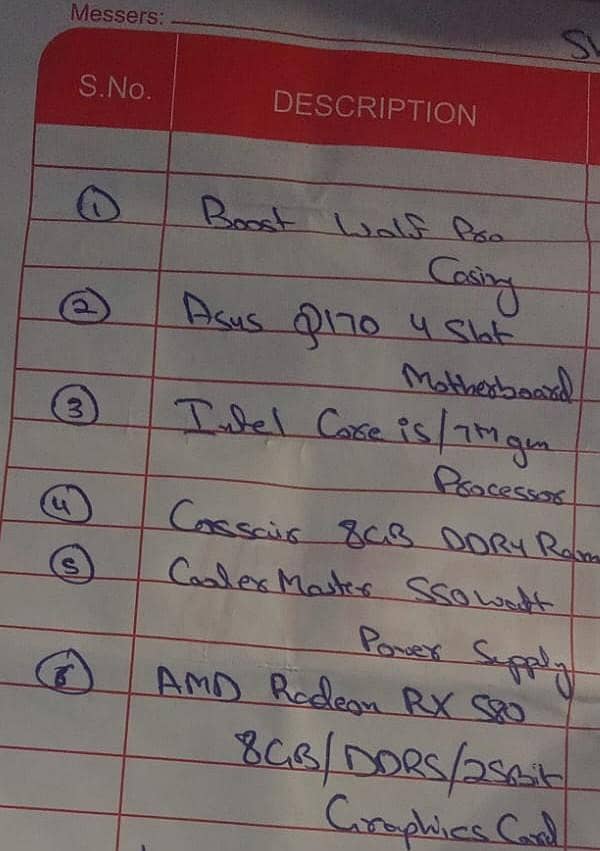 Messers:
S.No. DESCRIPTION
1 Boost Wolf Pro
Casing
2 Asus Q170 4 Slot
Motherboard
3 Intel Core i5/7th gen
Processor
4 Corsair 8GB DDR4 Ram
5 Cooler Master 550 watt
Power Supply
6 AMD Radeon RX 580
8GB/DDR5/256bit
Graphics Card